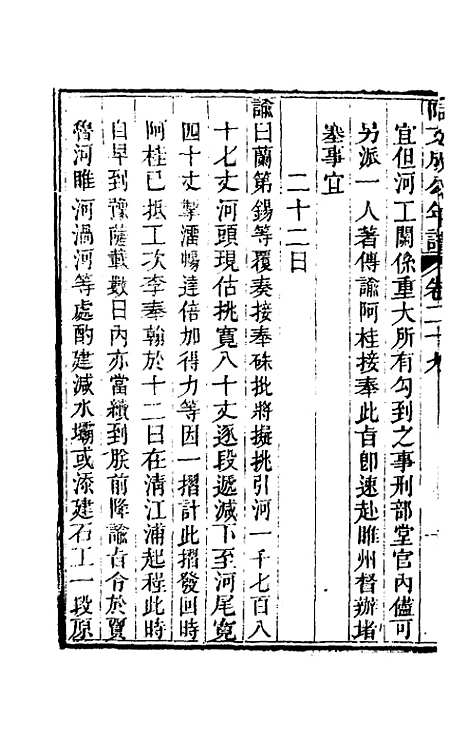 阿文成公年譜 卷二十九
宜但河工關係重大所有勾到之事刑部堂官內儘可
另派一人著傳諭阿桂接奉此旨卽速赴睢州督辦堵
塞事宜
二十二日
諭曰蘭第錫等覆奏接奉硃批將擬挑引河一千七百八
十七丈河頭現估挑寬八十丈逐段遞減下至河尾寬
四十丈掣溜暢達倍加得力等因一摺計此摺發回時
阿桂已抵工次李奉翰於十二日在清江浦起程此時
自早到豫薩載數日內亦當續到朕前降諭旨令於賈
魯河睢河渦河等處酌建減水壩或添建石工一段原